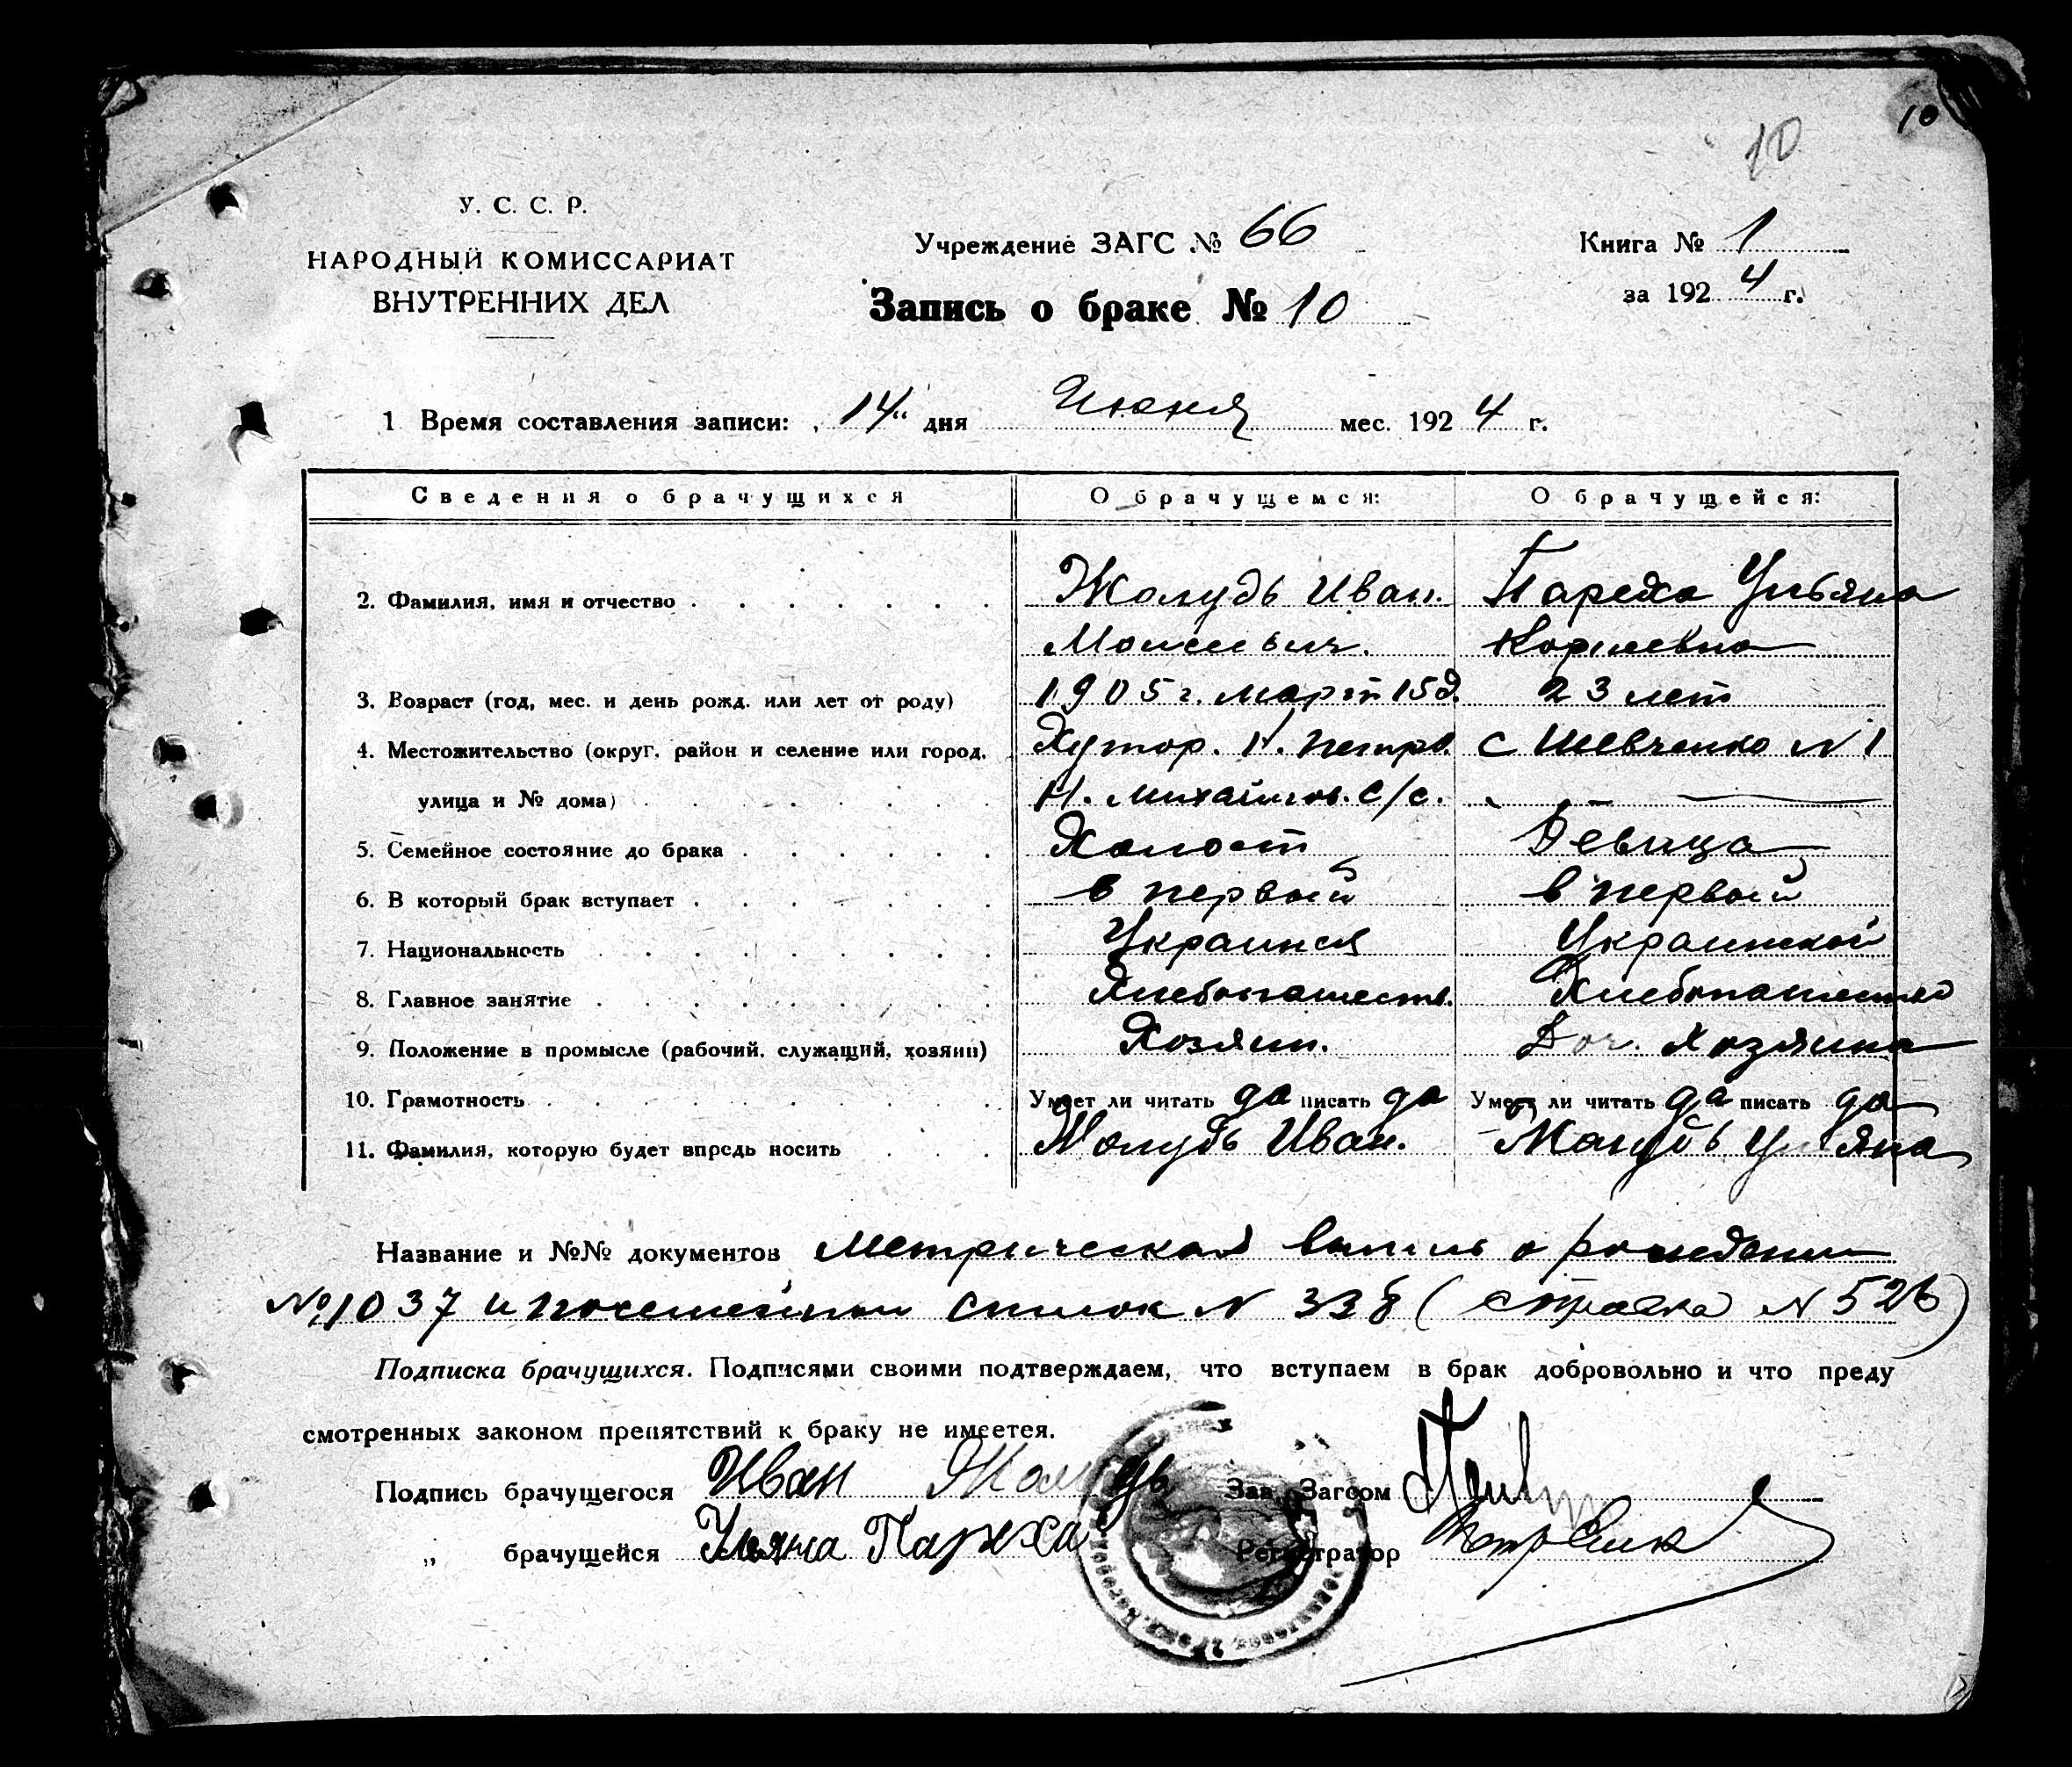 10
10
У. С. С. Р.
НАРОДНЫЙ КОМИССАРИАТ
ВНУТРЕННИХ ДЕЛ
Учреждение ЗАГС № 66
Книга № 1
за 1924 г.
Запись о браке № 10
1 Время составления записи: 14 дня Июня мес. 1924 г.
Сведения о брачущихся О брачущемся: О брачущейся:
2. Фамилия, имя и отчество Жолудь Иван. Пареха Ульяна
Моисеевич.
3. Возраст (год, мес. и день рожд. или лет от роду) 1905 г. март 15 д. 23 лет
4. Местожительство (округ, район и селение или город, Хутор. Н. Петро. с Шевченко N 1
улица и № дома) Н. Михайлов. с/с.
5. Семейное состояние до брака Холост Девица
6. В который брак вступает в первый в первый
7. Национальность Украинск Украинской
8. Главное занятие Хлебопашеств. Хлебопашество
9. Положение в промысле (рабочий, служащий, хозяин) Хозяин. Доч. Хозяина
10. Грамотность Умеет ли читать да писать да Умеет ли читать да писать да
11. Фамилия, которую будет впредь носить Жолудь Иван. Жолудь Ульяна
Название и №№ документов Метрическая выпись о рождении
№ 1037 и посемейный список N 338 (справка N 526)
Подписка брачущихся. Подписями своими подтверждаем, что вступаем в брак добровольно и что преду
смотренных законом препятствий к браку не имеется.
Подпись брачущегося Иван Жолудь Зав. Загсом
„ брачущейся Ульяна Пареха Регистратор